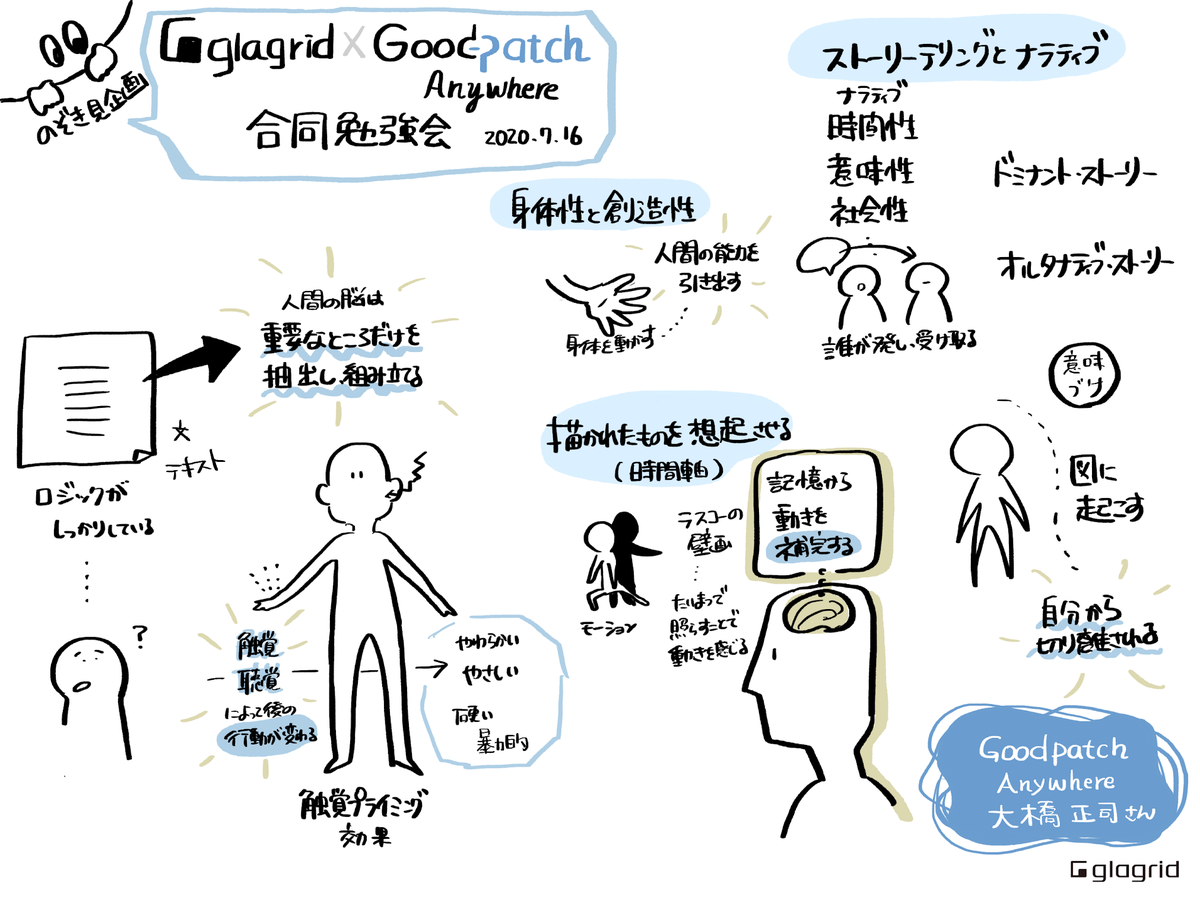 のぞき見企画
glagrid × Goodpatch
Anywhere
合同勉強会 2020.7.16
ストーリーテリングと ナラティブ
ナラティブ
時間性
意味性
社会性
ドミナント・ストーリー
オルタナティブ・ストーリー
誰が発し、受け取る
身体性と創造性
人間の能力を
引き出す
身体を動かす
人間の脳は
重要なところだけを
抽出し、組み立てる
文
テキスト
ロジックが
しっかりしている
?
触覚
聴覚
によって後の
行動が変わる
やわらかい
やさしい
硬い
暴力的
触覚プライミング
効果
描かれたものを想起させる
(時間軸)
ラスコーの
壁画
たいまつで
照らすことで
動きを感じる
モーション
記憶から
動きを
補完する
意味
づけ
図に
起こす
自分から
切り離される
Goodpatch
Anywhere
大橋 正司さん
glagrid